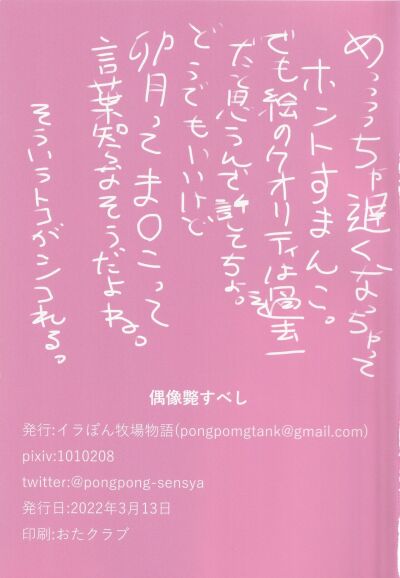 めっっっっちゃ遅くなっちゃって
ホントすまんこ。
でも絵のクオリティは過去一
だと思うんで許してちょ。
どうでもいいけど
卯月ってま〇こって
言葉知らなそうだよね。
そういうトコがシコれる。
偶像斃すべし
発行:イラぽん牧場物語(pongpomgtank@gmail.com)
pixiv:1010208
twitter:@pongpong-sensya
発行日:2022年3月13日
印刷:おたクラブ